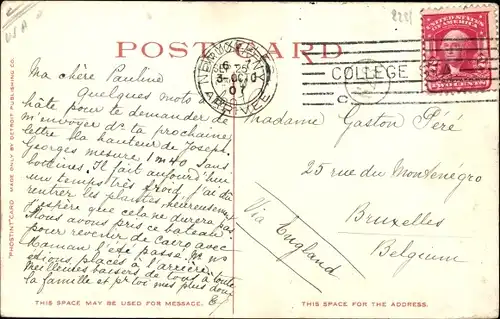 POST CARD
NEW YORK, N.Y.
COLLEGE
UNITED STATES OF AMERICA
TWO CENTS
"PHOSTINT" CARD MADE ONLY BY DETROIT PUBLISHING CO.
Ma chère Pauline
Quelques mots
hâte pour te demander de
m'envoyer ds ta prochaine
lettre la hauteur de Joseph.
Georges mesure 1m40 sans
bottines. Il fait aujourd'hui
un temps très froid, j'ai dû
rentrer les plantes, heureusement
j'espère que cela ne durera pas
Nous avons pris ce bateau
pour revenir de Cairo avec
Maman l'été passé. Ns ns
étions placés à l'arrière.
Meilleures baisers de tous à toute
la famille et pr toi mes plus doux
Madame Gaston Péré
25 rue du Monténégro
Bruxelles
Belgium
Via England
THIS SPACE MAY BE USED FOR MESSAGE.
THIS SPACE IS FOR THE ADDRESS.